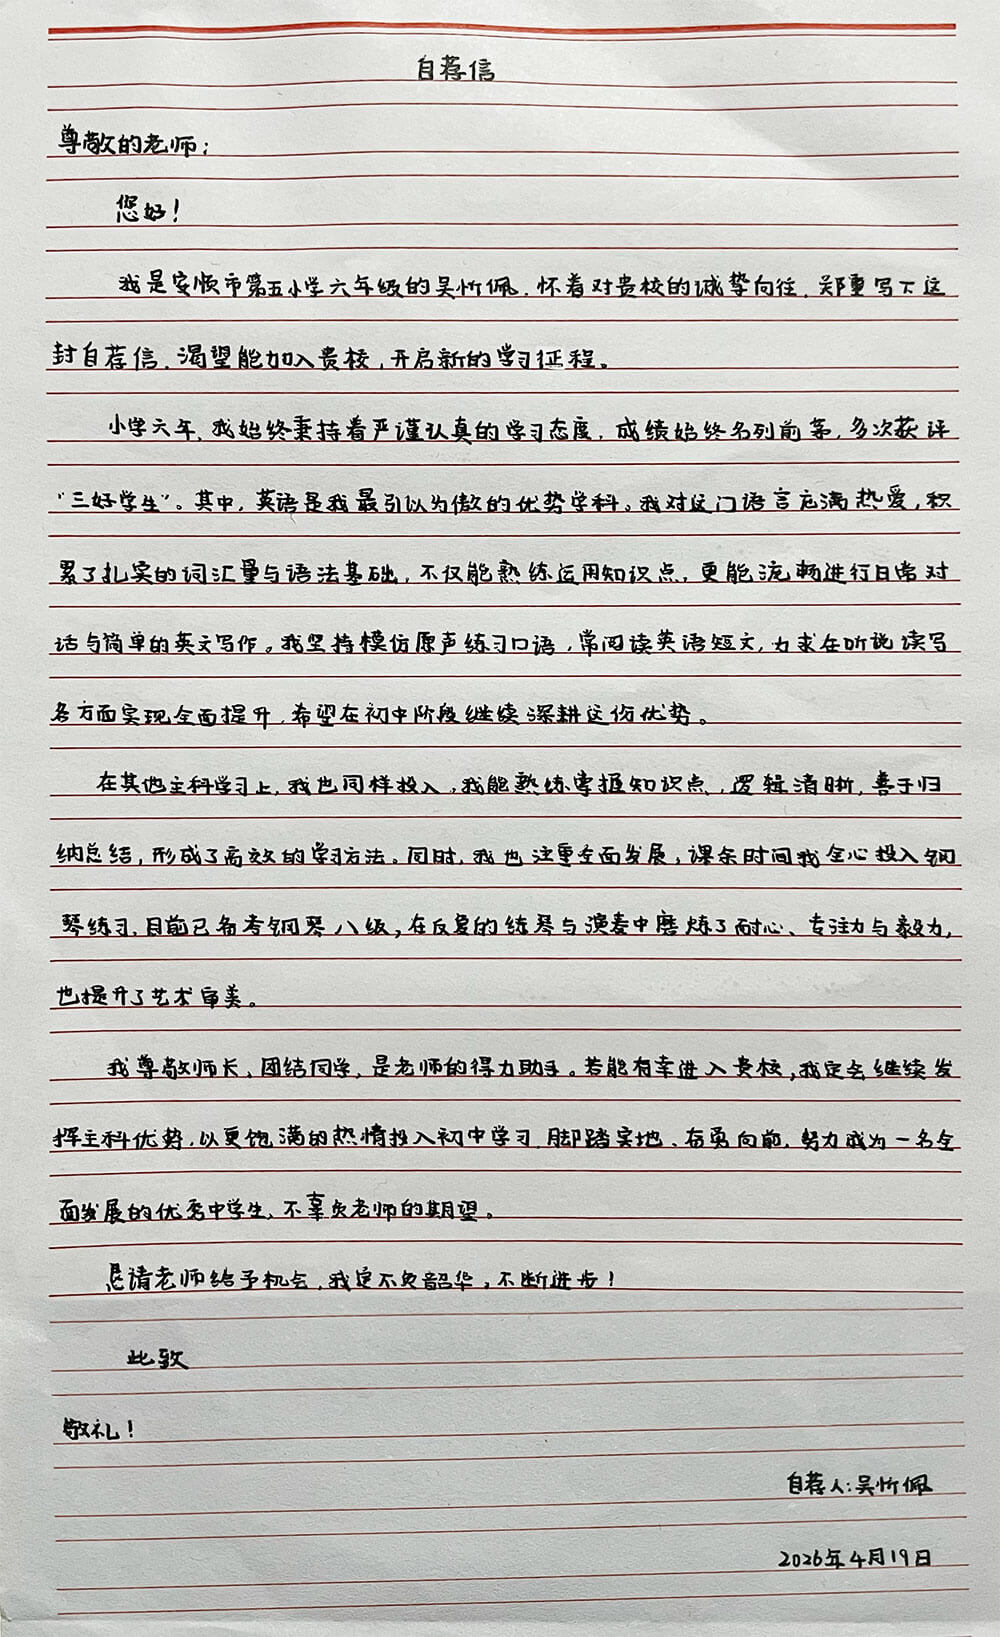 自荐信
尊敬的老师：
您好！
我是安顺市第五小学六年级的吴忻佩，怀着对贵校的诚挚向往，郑重写下这
封自荐信，渴望能加入贵校，开启新的学习征程。
小学六年，我始终秉持着严谨认真的学习态度，成绩始终名列前茅，多次获评
“三好学生”。其中，英语是我最引以为傲的优势学科。我对这门语言充满热爱，积
累了扎实的词汇量与语法基础，不仅能熟练运用知识点，更能流畅进行日常对
话与简单的英文写作。我坚持模仿原声练习口语，常阅读英语短文，力求在听说读写
各方面实现全面提升，希望在初中阶段继续深耕这份优势。
在其他主科学习上，我也同样投入，我能熟练掌握知识点，逻辑清晰，善于归
纳总结，形成了高效的学习方法。同时，我也注重全面发展，课余时间我全心投入钢
琴练习，目前已备考钢琴八级，在反复的练琴与演奏中磨炼了耐心、专注力与毅力，
也提升了艺术审美。
我尊敬师长、团结同学，是老师的得力助手。若能有幸进入贵校，我定会继续发
挥主科优势，以更饱满的热情投入初中学习，脚踏实地、奋勇向前，努力成为一名全
面发展的优秀中学生，不辜负老师的期望。
恳请老师给予机会，我定不负韶华，不断进步！
此致
敬礼！
自荐人：吴忻佩
2026年4月19日